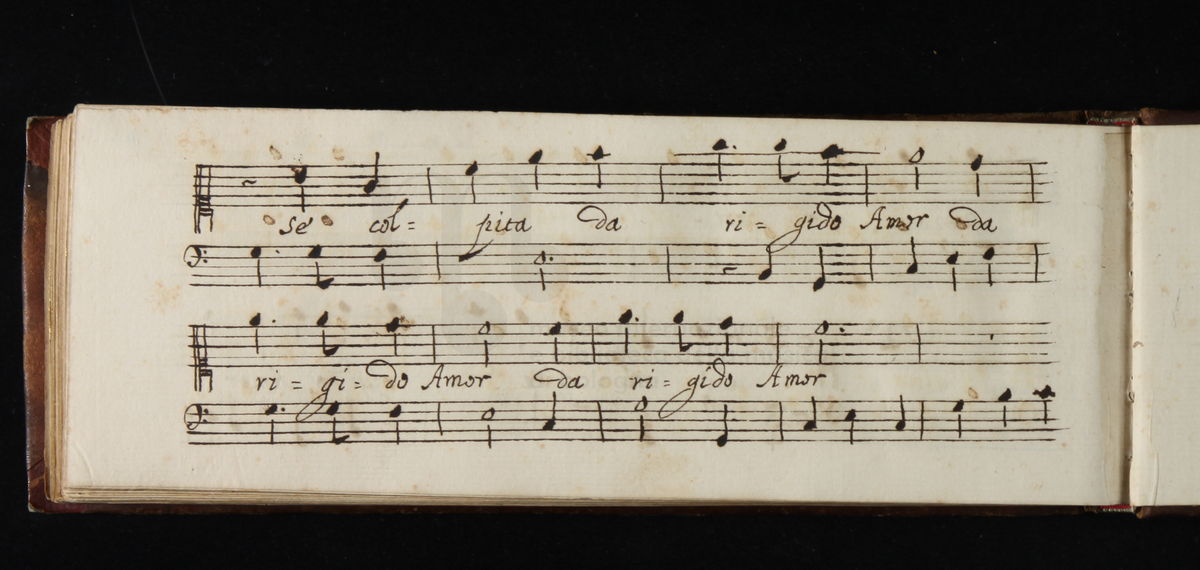 sé col= pita da ri= gido Amor da
ri= gi= do Amor da ri= gido Amor